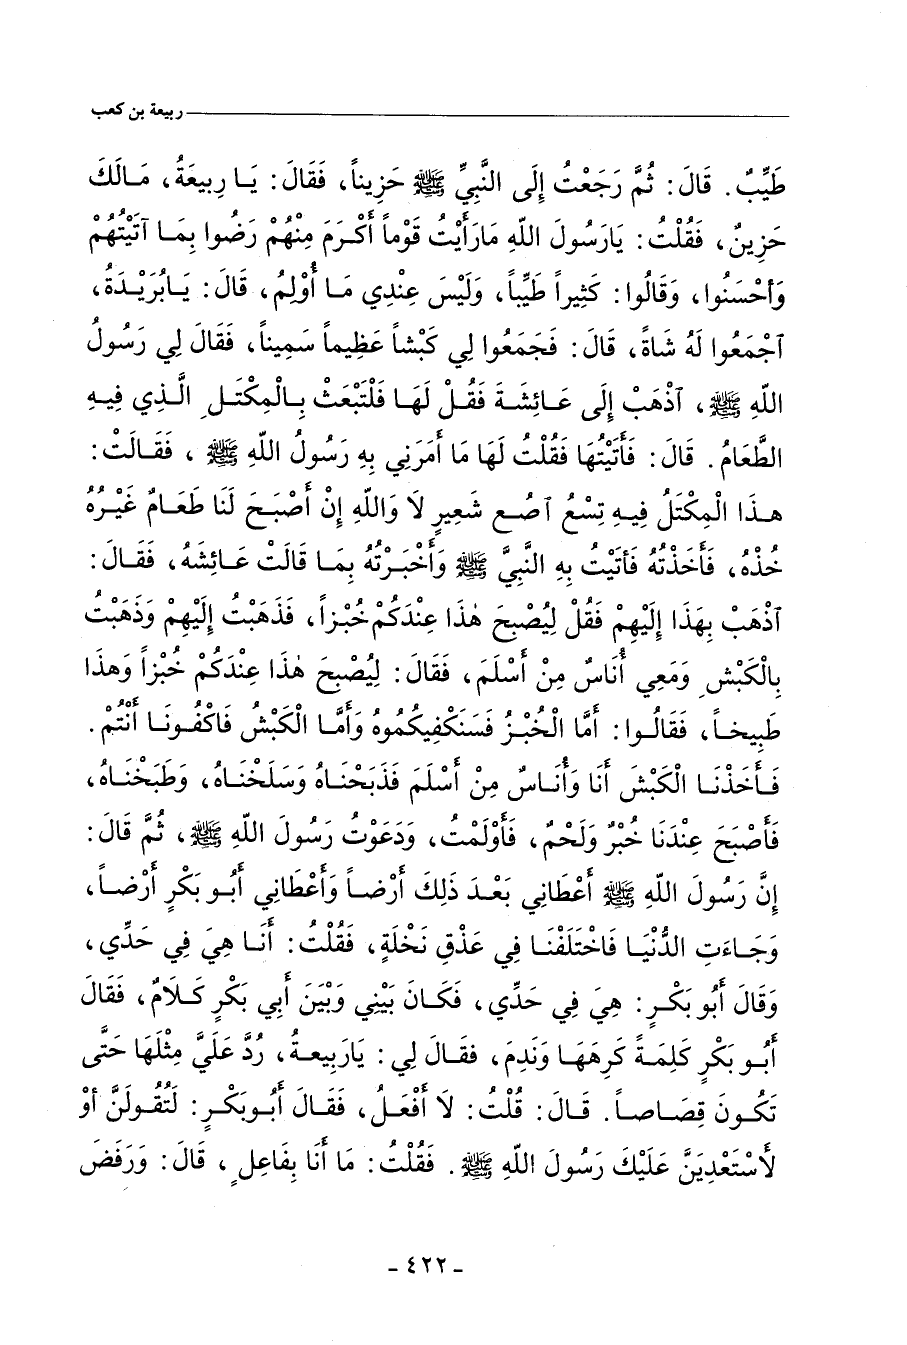 ربيعة بن كعب
طَيِّبٌ. قَالَ: ثُمَّ رَجَعْتُ إِلَى النَّبِيِّ ﷺ حَزِيناً، فَقَالَ: يَا رِبِيعَةُ، مَالَكَ
حَزِينٌ، فَقُلْتُ: يَارَسُولَ اللّهِ مَارَأَيْتُ قَوْماً أَكْرَمَ مِنْهُمْ رَضُوا بِمَا آتَيْتُهُمْ
وَأحْسَنُوا، وَقَالُوا: كَثِيراً طَيِّباً، وَلَيْسَ عِنْدِي مَا أُولِمُ، قَالَ: يَابُرَيْدَةُ،
آجْمَعُوا لَهُ شَاةً، قَالَ: فَجَمَعُوا لِي كَبْشاً عَظِيماً سَمِيناً، فَقَالَ لِي رَسُولُ
اللّهِ ﷺ، آذْهَبْ إِلَى عَائِشَةَ فَقُلْ لَهَا فَلْتَبْعَثْ بِالْمِكْتَلِ الَّذِي فِيهِ
الطَّعَامُ. قَالَ: فَأَتَيْتُهَا فَقُلْتُ لَهَا مَا أَمَرَنِي بِهِ رَسُولُ اللّهِ ﷺ ، فَقَالَتْ:
هذَا الْمِكْتَلُ فِيهِ تِسْعُ آصُعِ شَعِيرٍ لَا وَاللّهِ إِنْ أَصْبَحَ لَنَا طَعَامٌ غَيْرُهُ
خُذْهُ، فَأَخَذْتُهُ فَأتَيْتُ بِهِ النَّبِيَّ ﷺ وَأَخْبَرْتُهُ بِمَا قَالَتْ عَائِشَةُ، فَقَالَ:
آذْهَبْ بِهَذَا إِلَيْهِمْ فَقُلْ لِيُصْبِحَ هٰذَا عِنْدَكُمْ خُبْزاً، فَذَهَبْتُ إِلَيْهِمْ وَذَهَبْتُ
بِالْكَبْشِ وَمَعِي أُنَاسٌ مِنْ أَسْلَمَ، فَقَالَ: لِيُصْبِحَ هٰذَا عِنْدَكُمْ خُبْزاً وَهٰذَا
طَبِيخاً، فَقَالُوا: أَمَّا الْخُبْزُ فَسَنَكْفِيكُمُوهُ وَأَمَّا الْكَبْشُ فَاكْفُونَا أَنْتُمْ.
فَأَخَذْنَا الْكَبْشَ أَنَا وَأُنَاسٌ مِنْ أَسْلَمَ فَذَبَحْنَاهُ وَسَلَخْنَاهُ، وَطَبَخْنَاهُ،
فَأَصْبَحَ عِنْدَنَا خُبْزٌ وَلَحْمٌ، فَأَوْلَمْتُ، وَدَعَوْتُ رَسُولَ اللّهِ ﷺ، ثُمَّ قَالَ:
إِنَّ رَسُولَ اللّهِ ﷺ أَعْطَانِي بَعْدَ ذَلِكَ أَرْضاً وَأَعْطَانِي أَبُو بَكْرٍ أَرْضاً،
وَجَاءَتِ الدُّنْيَا فَاخْتَلَفْنَا فِي عَذْقِ نَخْلَةٍ، فَقُلْتُ: أَنَا هِيَ فِي حَدِّي،
وَقَالَ أَبُو بَكْرٍ: هِيَ فِي حَدِّي، فَكَانَ بَيْنِي وَبَيْنَ أَبِي بَكْرٍ كَلَامٌ، فَقَالَ
أَبُو بَكْرٍ كَلِمَةً كَرِهَهَا وَنَدِمَ، فقَالَ لِي: يَارَبِيعةُ، رُدَّ عَلَيَّ مِثْلَهَا حَتَّى
تَكُونَ قِصَاصاً. قَالَ: قُلْتُ: لَا أَفْعَلُ، فَقَالَ أَبُوبَكْرٍ: لَتَقُولَنَّ أوْ
لَأَسْتَعْدِيَنَّ عَلَيْكَ رَسُولَ اللّهِ ﷺ. فَقُلْتُ: مَا أَنَا بِفَاعِلٍ، قَالَ: وَرَفَضَ
- ٤٢٢ -